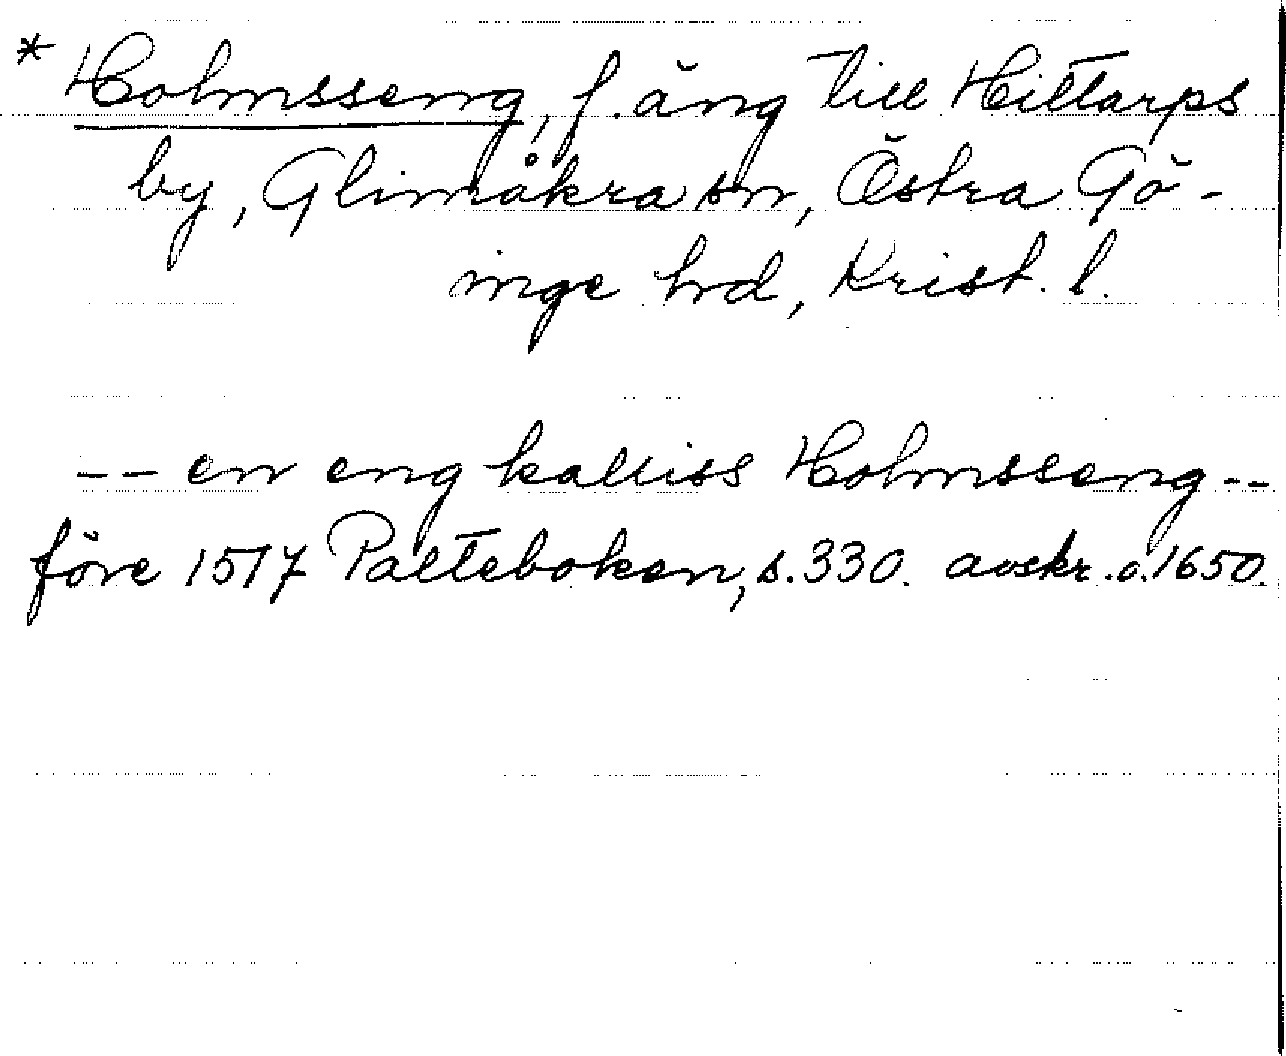 * Holmsseng, f. äng till Hittarps
by, Glimåkra sn, Östra Gö-
inge hrd, Krist. l.
-- en eng kalliss Holmsseng --
före 1517 Palteboken, s. 330. avskr. o. 1650.